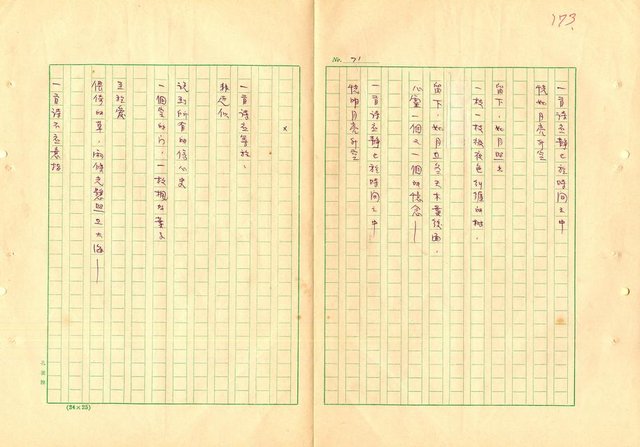 173.
No. 71
一首詩应静止於時間之中
恍如月亮升空
留下，如月照之
一枝一枝被夜色糾纏的樹，
留下，如月在冬天木葉後面，
心靈一個又一個的懷念——
一首詩应静止於時間之中
恍如月亮升空
×
一首詩应等於：
非近似
說到所有的傷心史
一個空的門，一枚楓的葉子
至於愛
傾倚的草，兩條光懸照在大海——
一首詩不应意指
(24×25)